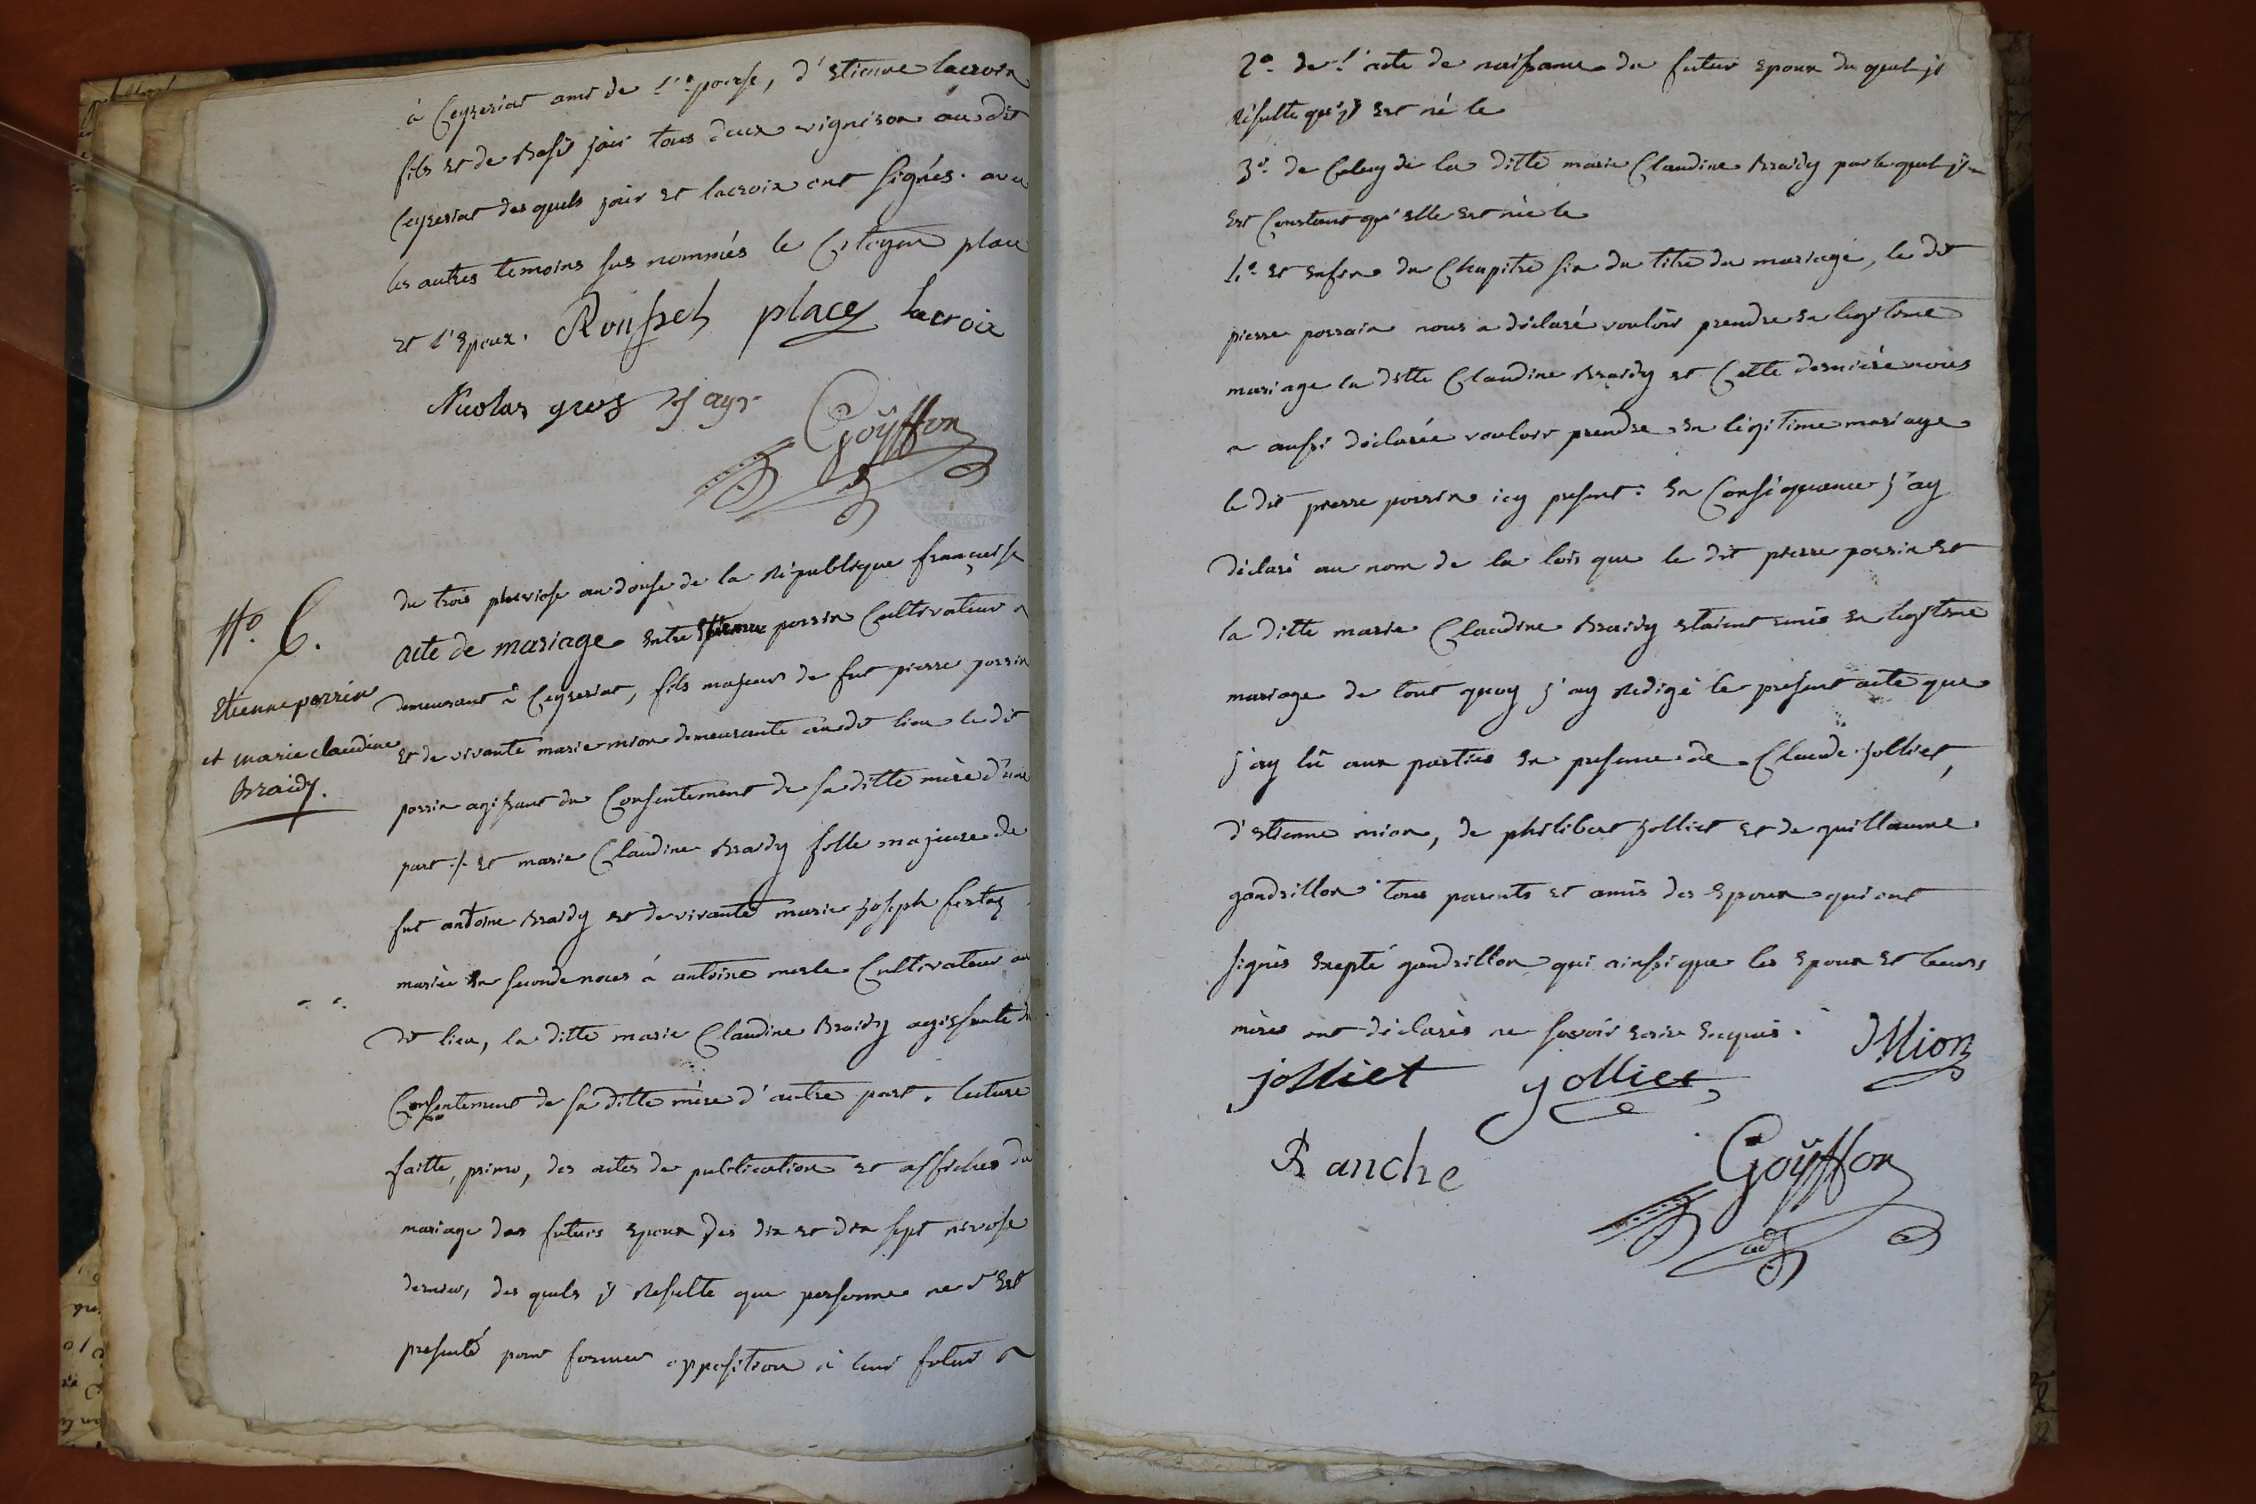 à Ceyzeriat ami de l'Epouse, d'Etienne lacroix
fils et de joir tous deux vigneron au dit
Ceyzeriat des quels joir et lacroix ont signés. avec
les autres temoins sus nommés le Citoyen place
et l'Epoux. Roussel place lacroix
Nicolas gros
Goÿffon
N.o 6.
Etienne perrin
et marie claudine
Braidy.
du trois pluviose an douse de la République françaisse
acte de mariage Entre Etienne perrin Cultivateur
demeurant à Ceyzeriat, fils majeur de fut pierre perrin
et de vivante marie mion demeurante audit lieu le dit
perrin agissant du Consentement de sa ditte mère d'une
part ./. et marie Claudine Braidy fille majeure de
fut antoine Braidy et de vivante marie joseph
mariée en seconde noces à antoine merle Cultivateur au
dit lieu, la ditte marie Claudine Braidy agissante du
Consentement de sa ditte mère d'autre part. lecture
faitte, primo, des actes de publication et affiches du
mariage des futurs Epoux des dix et dix sept nivose
dernier, des quels il Resulte que personne ne s'Est
presenté pour former opposition à leur futur
2o. de l'acte de naissance du futur Epoux du quel il
Résulte qu'il Est né le
3o. de Celuy de la ditte marie Claudine Braidy par le quel il
Est Constant qu'elle Est née le
4o. et Enfin du Chapitre six du titre du mariage, le dit
pierre perrin nous a déclaré vouloir prendre En legitime
mariage la ditte Claudine Braidy et Cette dernière nous
a aussi déclarée vouloir prendre En légitime mariage
le dit pierre perrin icy present. En Conséquance j'ay
déclaré au nom de la lois que le dit pierre perrin et
la ditte marie Claudine Braidy etaient unis En legitime
mariage de tout quoy j'ay Redigé le present acte que
j'ay lû aux parties En presence de Claude jolliet,
d'etienne mion, de philibert jolliet et de guillaume
gandrillon tous parents et amis des Epoux qui ont
signés Exepté gandrillon qui ainssi que les Epoux et leurs
mères ont déclarés ne savoir Ecrire Enquis.
jolliet jolliet Mion
Ranche Goÿffon